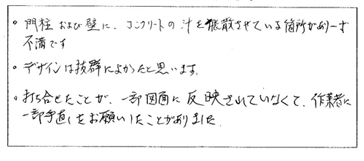 。門柱および壁に、コンクリートの汁を飛散させている箇所があり一寸
不満です
。デザインは抜群によかったと思います。
。打ち合せたことが、一部図面に反映されていなくて、作業者に
一部手直しをお願いしたことがありました。